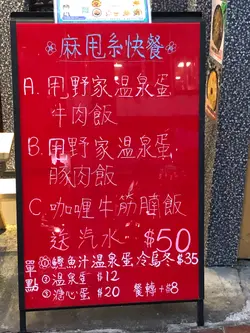 麻甩系快餐
A. 甩野家溫泉蛋
牛肉飯
B. 甩野家溫泉蛋
豚肉飯
C. 咖喱牛筋腩飯
送汽水 $50
單點
① 鰹魚汁溫泉蛋冷烏冬 $35
② 溫泉蛋 $12
③ 溏心蛋 $20 餐轉+$8